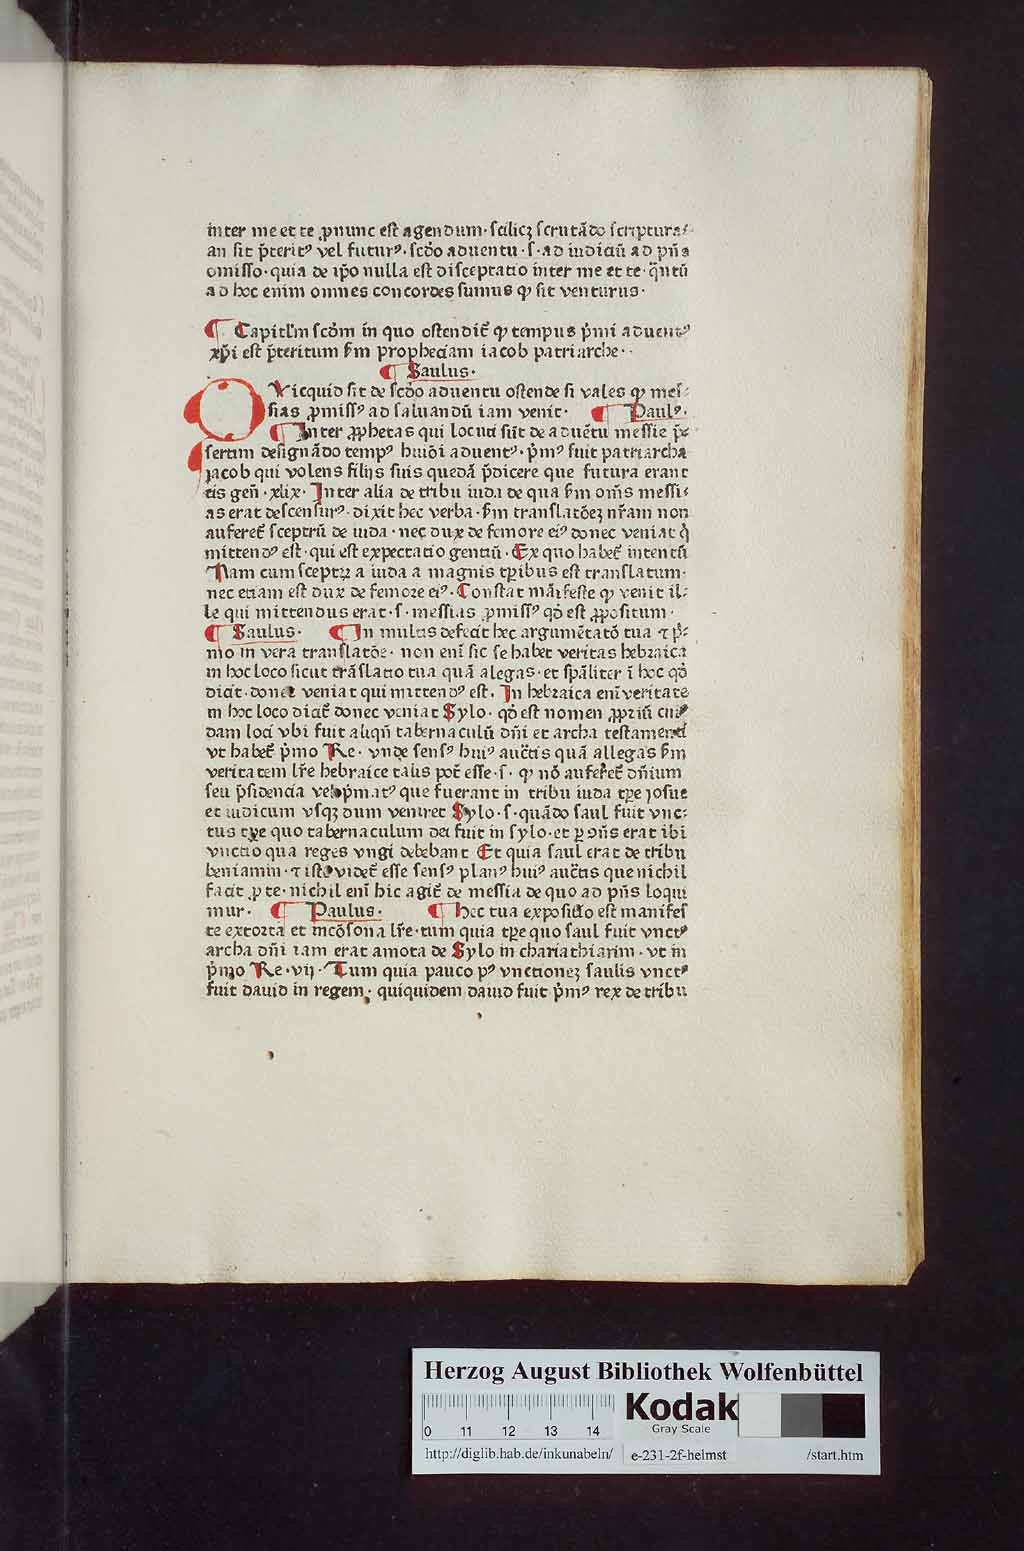 inter me et te ꝓnunc est agendum· scilicꝫ scrutãdo scripturas
an sit p̃teritꝰ vel futurꝰ· scd̃o aduentu ·s· ad iudiciũ ad pñs
omisso· quia de ip̃o nulla est disceptatio inter me et te· q̃ntũ
ad hoc enim omnes concordes sumus ꝙ sit venturus·
¶ Capitl'm scd̃m in quo ostendit̃ ꝙ tempus p̃mi aduentꝰ
xp̃i est p̃teritum s'm propheciam iacob patriarche··
¶ Saulus·
QVicquid sit de scd̃o aduentu ostende si vales ꝙ mes-
sias ꝓmissꝰ ad saluandũ iam venit· ¶ Paulꝰ·
¶ Inter ꝓphetas qui locuti sũt de aduẽtu messie p̃-
sertim designãdo tempꝰ huiõi aduentꝰ· p̃mꝰ fuit patriarcha
jacob qui volens filijs suis quedã p̃dicere que futura erant
eis geñ·xlix· Inter alia de tribu iuda de qua s'm om̃s messi-
as erat descensurꝰ· dixit hec verba· s'm translatõeꝫ nr̃am non
auferet̃ sceptrũ de iuda· nec dux de femore eiꝰ donec veniat q̃
mittendꝰ est· qui est expectatio gentiũ· Ex quo habet̃ intentũ
Nam cum sceptꝝ a iuda a magnis tp̃ibus est translatum·
nec etiam est dux de femore eiꝰ· Constat mãifeste ꝙ venit il-
le qui mittendus erat ·s· messias ꝓmissꝰ qd̃ est ꝓpositum·
¶ Saulus· ¶ In multis defecit hec argumẽtatõ tua ⁊ p̃-
mo in vera translatõe· non eni͂ sic se habet veritas hebraica
in hoc loco sicut trãslatio tua quã alegas· et sp̃aliter ĩ hoc qd̃
dicit· donec veniat qui mittendꝰ est· In hebraica eni͂ veritate
in hoc loco dicit̃ donec veniat Sylo· qd̃ est nomen ꝓpriũ cuiꝰ
dam loci vbi fuit aliqñ tabernaculũ dñi et archa testamenti
vt habet̃ p̃mo Re· vnde sensꝰ huiꝰ auctis quã allegas s'm
veritatem lr̃e hebraice talis pot̃ esse ·s· ꝙ nõ auferet̃ dñium
seu p̃sidencia vel p̃matꝰ que fuerant in tribu iuda tp̃e josue
et iudicum vsqꝫ dum veniret Sylo ·s· quãdo saul fuit vnc-
tus tp̃e quo tabernaculum dei fuit in sylo· et ꝑ ꝯñs erat ibi
vnctio qua reges vngi debebant Et quia saul erat de tribu
beniamin· ⁊ iste videt̃ esse sensꝰ planꝰ huiꝰ auctis que nichil
facit ꝓ te· nichil eni͂ hic agit̃ de messia de quo ad pñs loqui
mur· ¶ Paulus· ¶ Hec tua expositio est manifes
te extorta et incõsona lr̃e· tum quia tp̃e quo saul fuit vnctꝰ
archa dñi iam erat amota de Sylo in chariathiarim· vt in
p̃mo Re·vij· Tum quia pauco pꝰ vnctioneꝫ saulis vnctꝰ
fuit dauid in regem· quiquidem dauid fuit p̃mꝰ rex de tribu
Herzog August Bibliothek Wolfenbüttel
Kodak
Gray Scale
0 11 12 13 14
http://diglib.hab.de/inkunabeln/ e-231-2f-helmst /start.htm